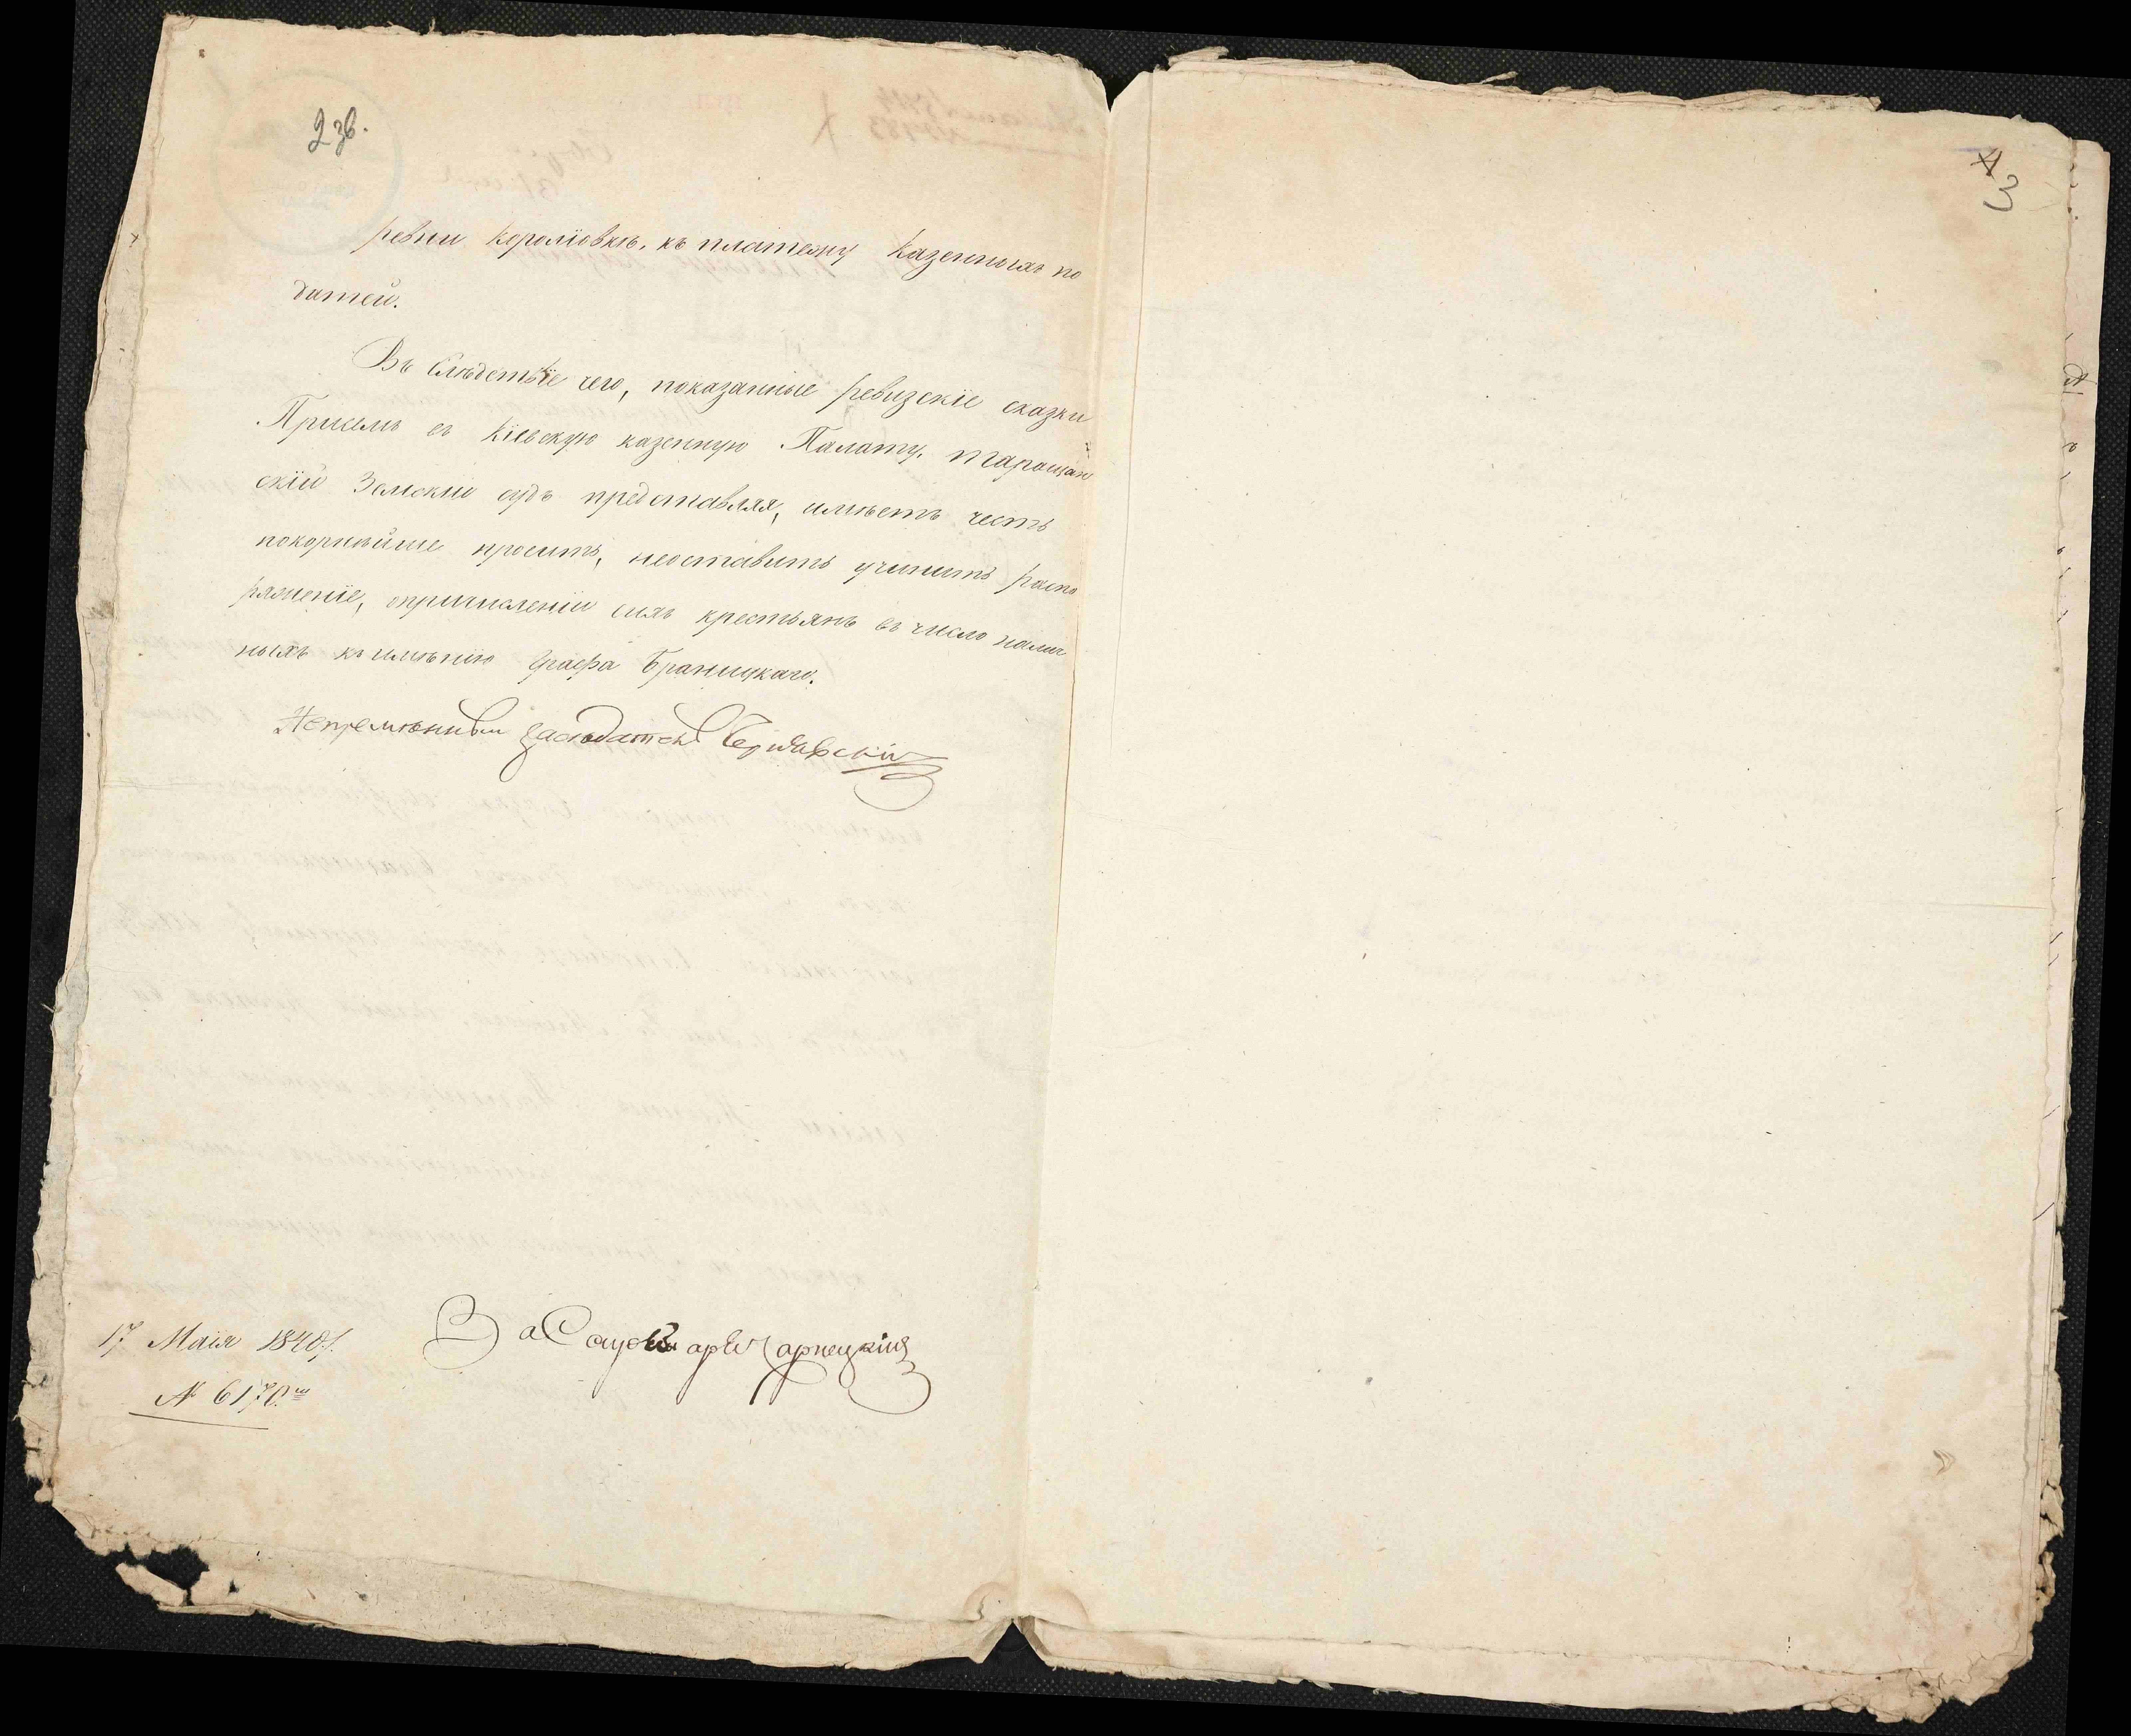 2 зв.
ревни Королiовкѣ, къ платежу казенныхъ по
датей.
Въ слѣдствіе чего, показанные ревизскіе сказки
Приемъ въ Кіевскую казенную Палату, Таращан
скій Земский судъ представляя, имѣетъ честь
покорнѣйше просить, неоставить учинить распо
ряженіе, опричисленіи сихъ крестьянъ въ число налич
ныхъ къ имѣнію Графа Браницкаго.
Непремѣнный засѣдатель
За Чарнецкій
17 Маія 1840 г.
№ 6170.
4
3